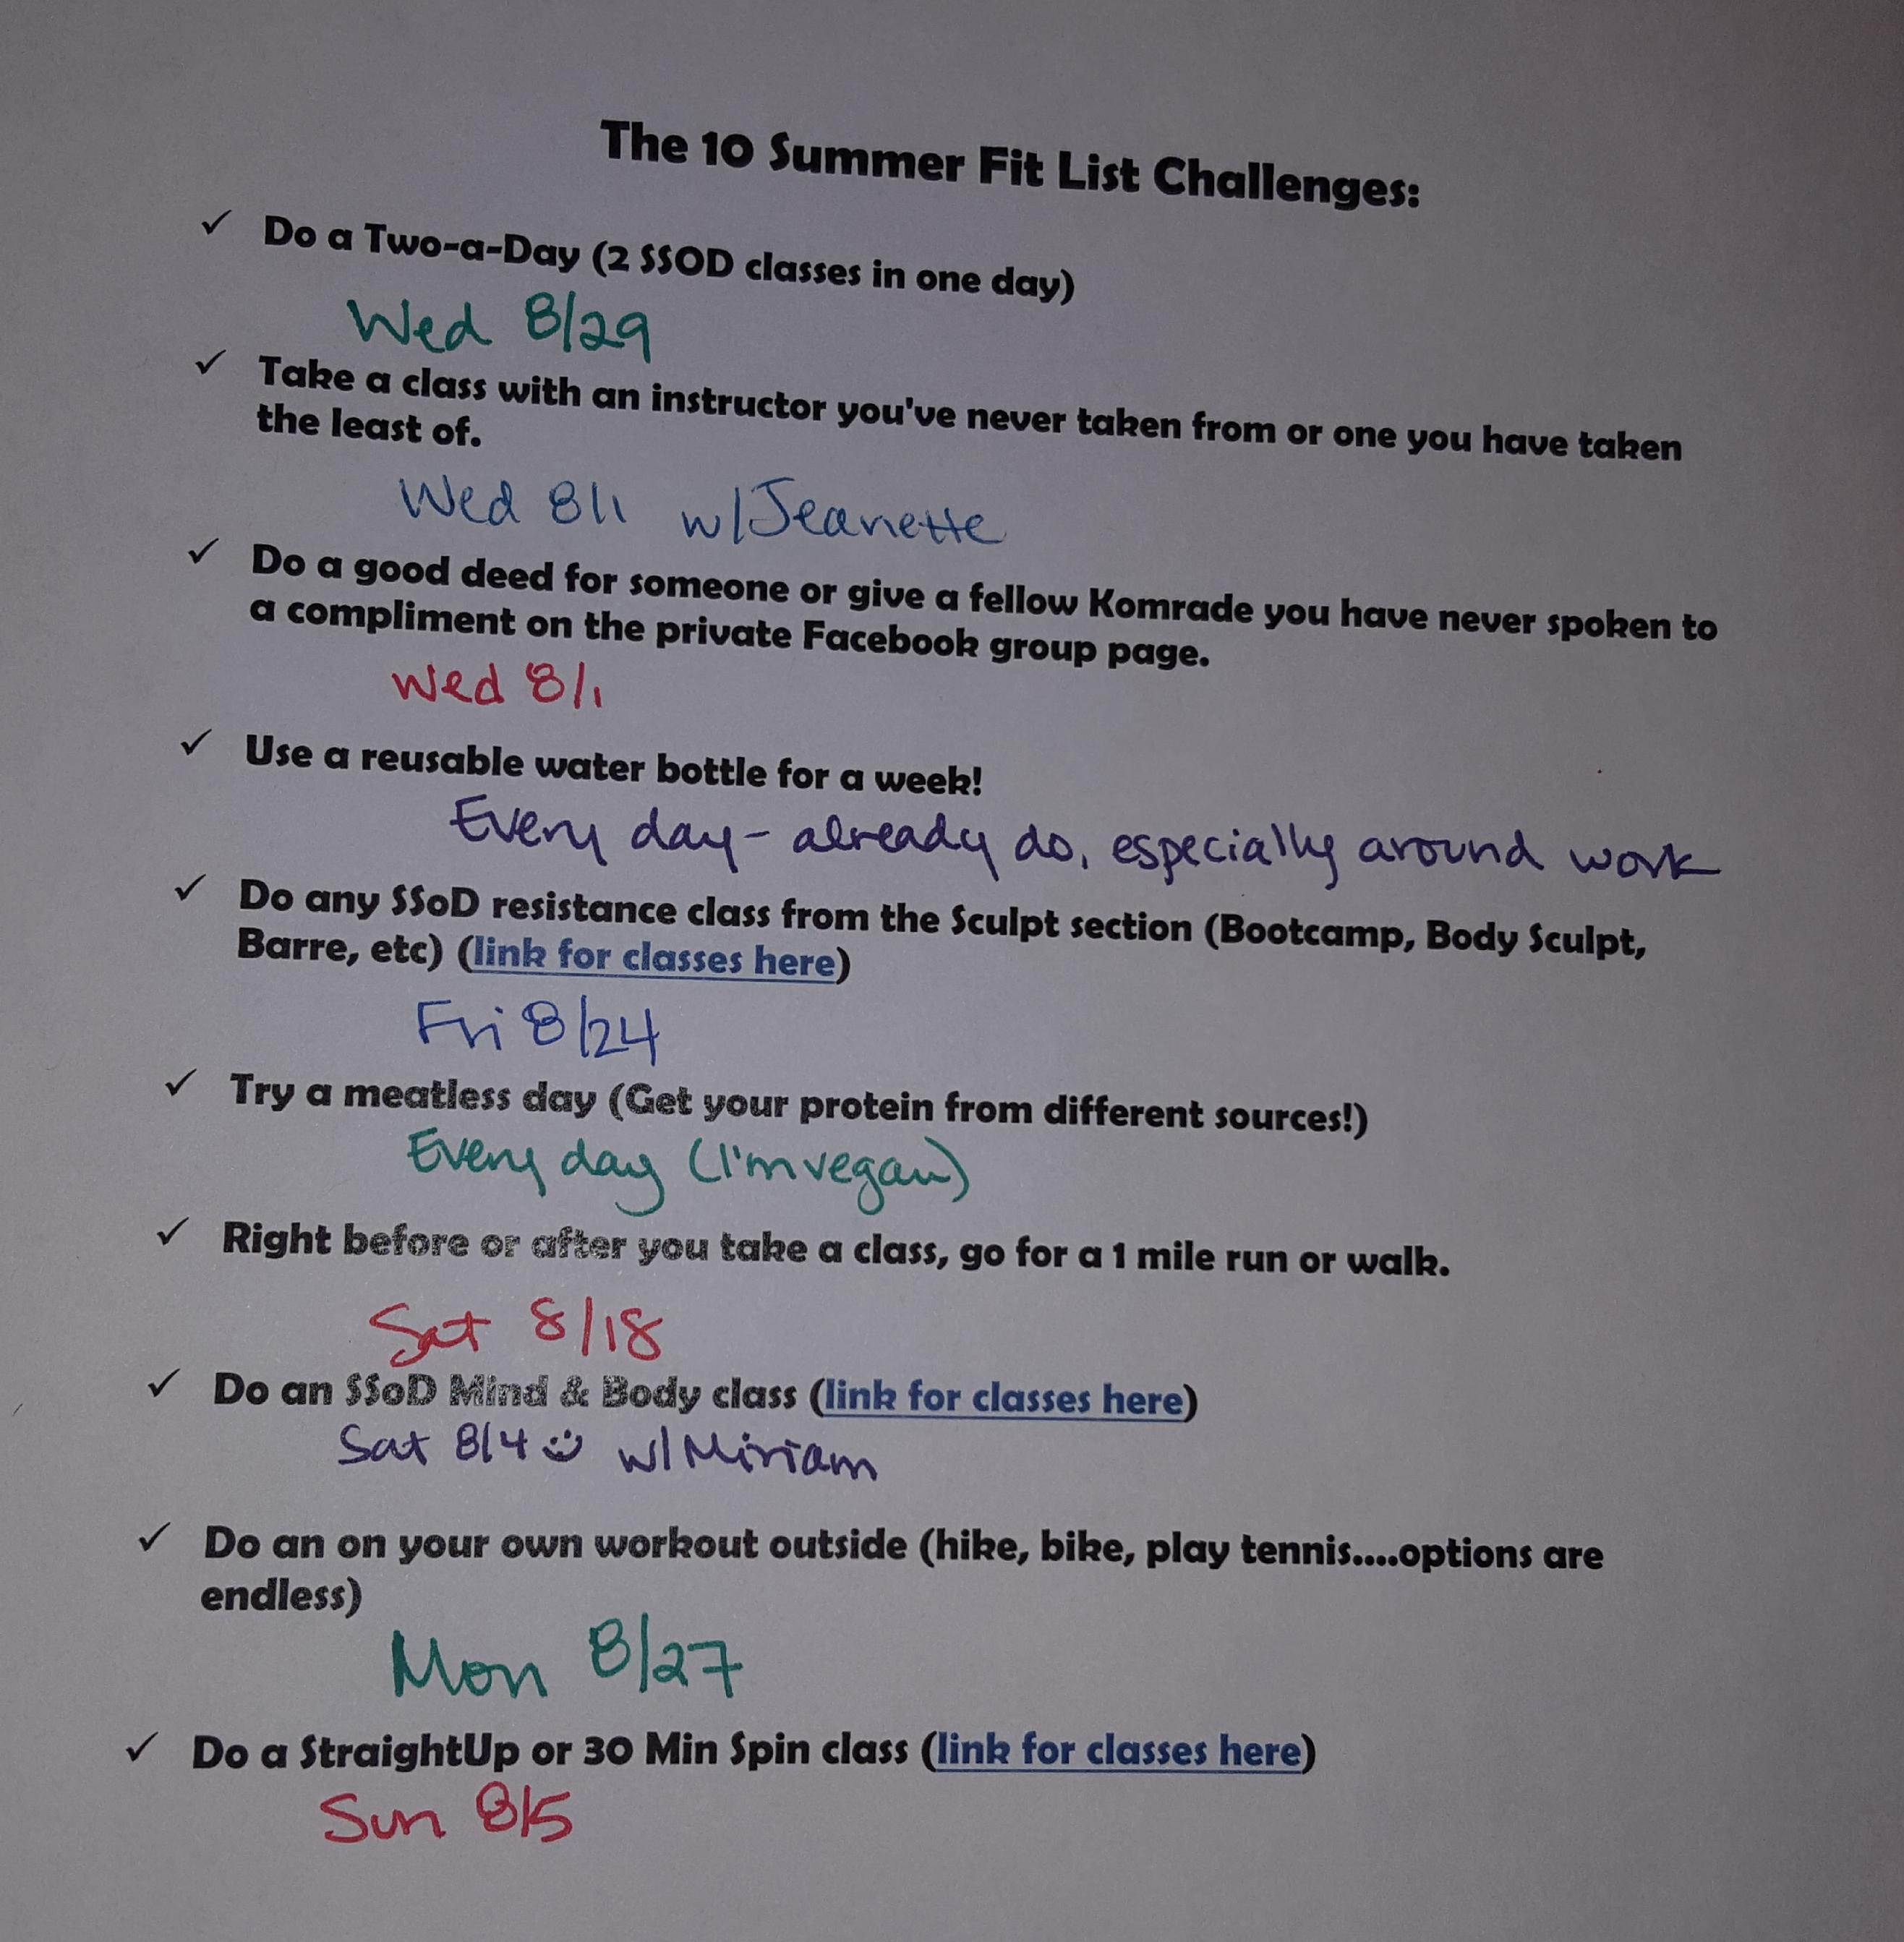 The 10 Summer Fit List Challenges:
✓ Do a Two-a-Day (2 SSOD classes in one day)
Wed 8/29
✓ Take a class with an instructor you've never taken from or one you have taken
the least of.
Wed 8/1 w/Jeanette
✓ Do a good deed for someone or give a fellow Komrade you have never spoken to
a compliment on the private Facebook group page.
Wed 8/1
✓ Use a reusable water bottle for a week!
Every day - already do, especially around work
✓ Do any SSoD resistance class from the Sculpt section (Bootcamp, Body Sculpt,
Barre, etc) (link for classes here)
Fri 8/24
✓ Try a meatless day (Get your protein from different sources!)
Every day (I'm vegan)
✓ Right before or after you take a class, go for a 1 mile run or walk.
Sat 8/18
✓ Do an SSoD Mind & Body class (link for classes here)
Sat 8/4 w/Miriam
✓ Do an on your own workout outside (hike, bike, play tennis....options are
endless)
Mon 8/27
✓ Do a StraightUp or 30 Min Spin class (link for classes here)
Sun 8/5